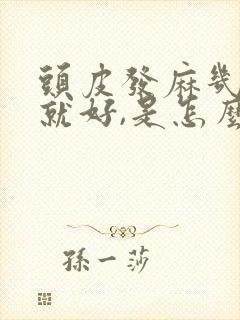 頭皮發麻幾
就好,是怎麼
孫一莎